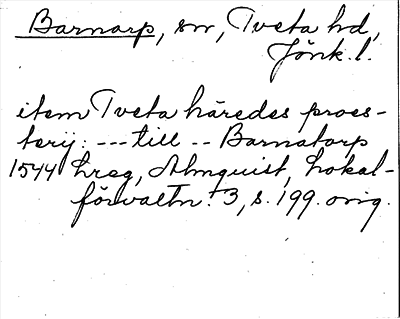 Barnarp, sn, Tveta hd,
Jönk. l.
item Tveta häredes proes-
terij: --- till -- Barnatorp
1544 hreg, Almquist, Lokal-
förvaltn. 3, s. 199. orig.